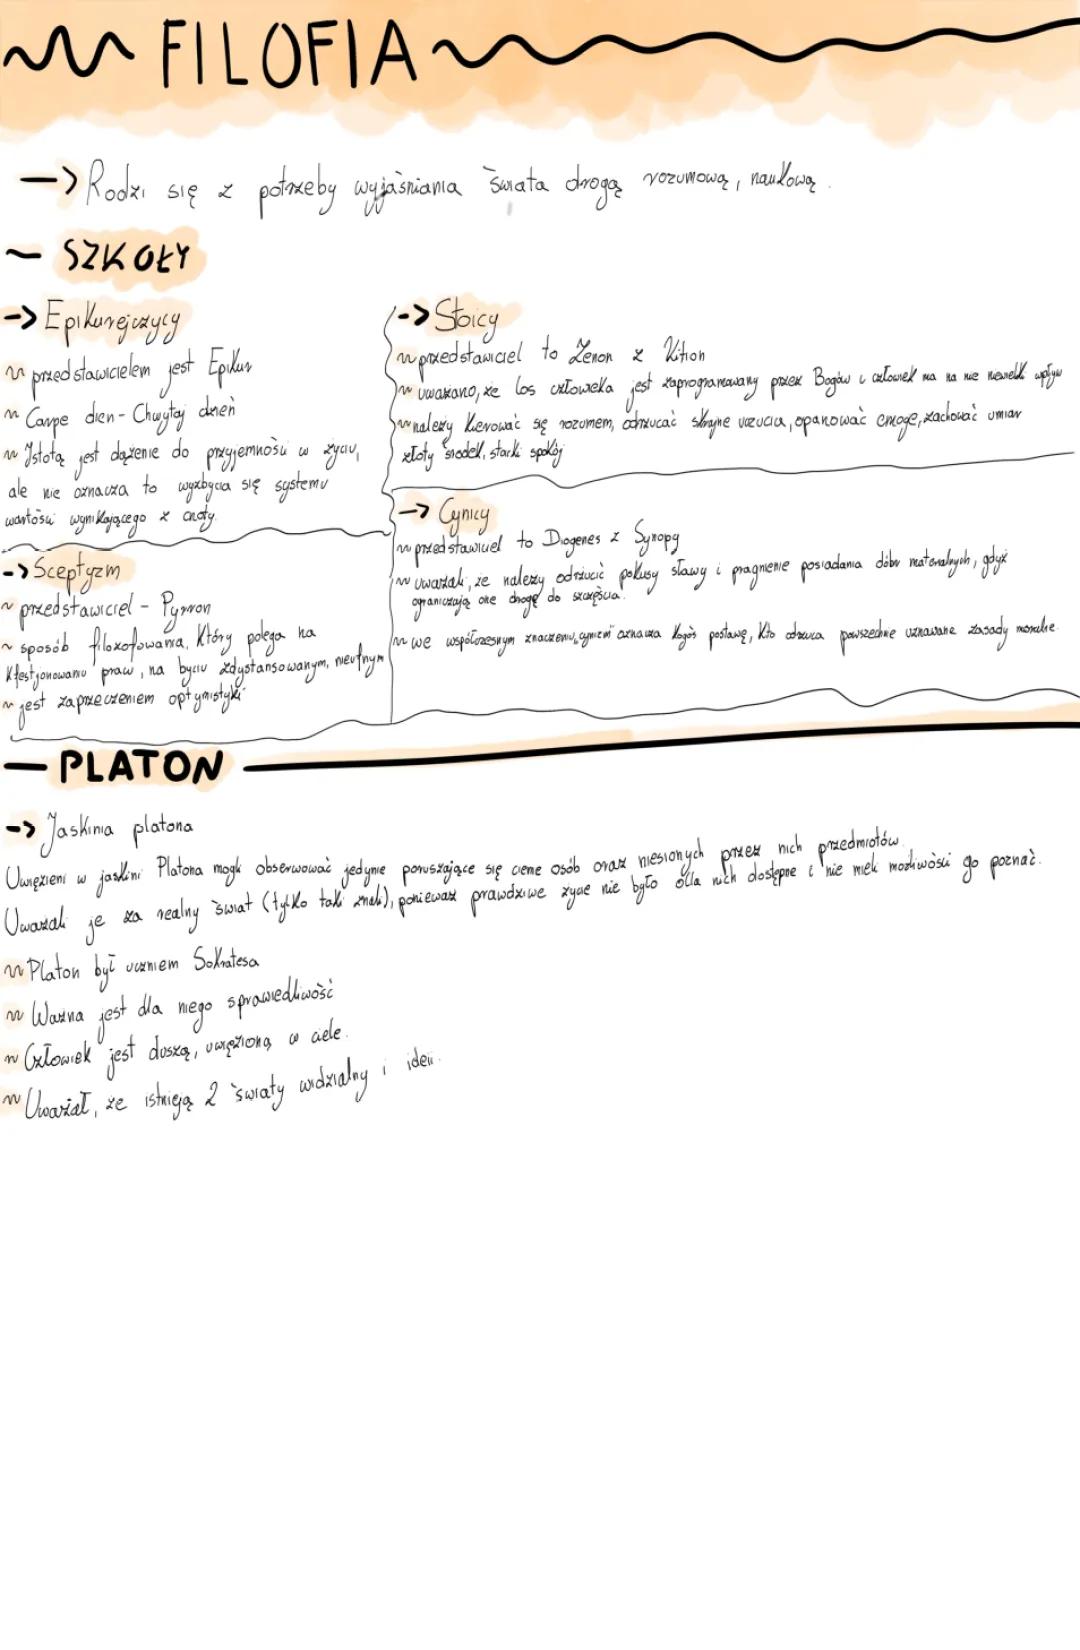 FILOFIA
-> Rodzi się z potrzeby wyjaśniania świata drogą rozumową, naukową.
~ SZKOŁY
-> Epikurejczycy
~ przedstawicielem jest Epikur
~ Carpe dien - Chwytaj dzień
~ Istotą jest dążenie do przyjemności w życiu,
ale nie oznacza to wyzbycia się systemu
wartości wynikającego z cnoty.
-> Sceptyzm
~ przedstawiciel - Pyrron
~ sposób filozofowania, który polega na
kfestjonowaniu praw, na byciu zdystansowanym, nieufnym
~ jest zaprzeczeniem optymistyki
-> Stoicy
~ przedstawiciel to Zenon z Kition
~ uważano, że los człowieka jest zaprogramowany przez Bogów i człowiek ma na nie niewielki wpływ
~ należy kierować się rozumem, odrzucać skrajne uczucia, opanować emocje, zachować umiar
złoty środek, starki spokój
-> Cynicy
~ przedstawiciel to Diogenes z Synopy
~ uważali, że należy odrzucić pokusy sławy i pragnienie posiadania dóbr materialnych, gdyż
ograniczają one drogę do szczęścia.
~ we współczesnym znaczeniu "cynizm" oznacza kogoś postawę, kto odrzuca powszechnie uznawane zasady moralne.
— PLATON
-> Jaskinia platona
Uwięzieni w jaskini Platona mogli obserwować jedynie poruszające się cienie osób oraz niesionych przez nich przedmiotów.
Uważali je za realny świat (tylko taki znali), ponieważ prawdziwe życie nie było dla nich dostępne i nie mieli możliwości go poznać.
~ Platon był uczniem Sokratesa
~ Ważna jest dla niego sprawiedliwość
~ Człowiek jest duszą, uwięzioną w ciele.
~ Uważał, że istnieją 2 światy widzialny i ideii.